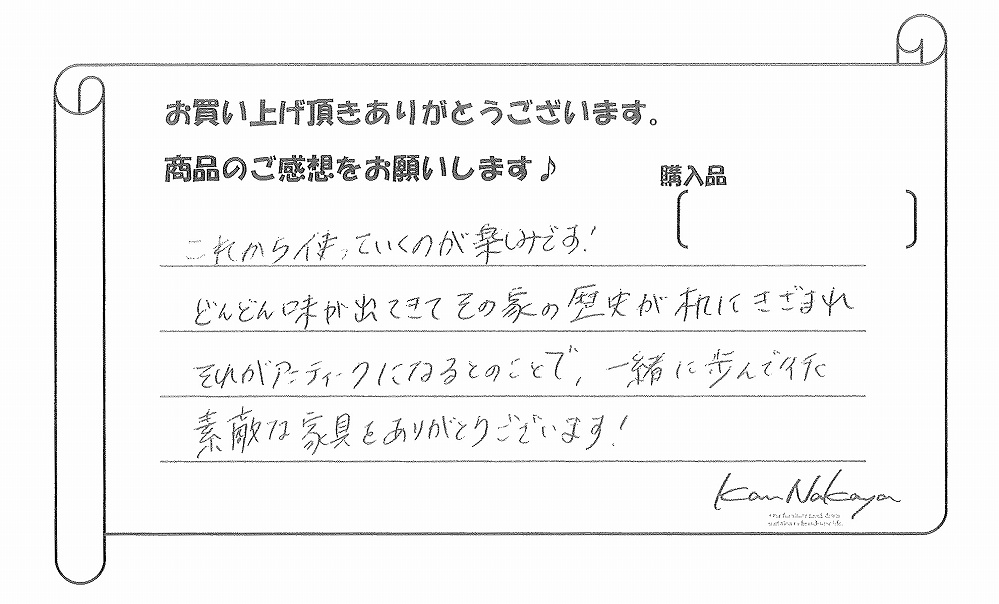 お買い上げ頂きありがとうございます。
商品のご感想をお願いします♪
購入品
これから使っていくのが楽しみです!
どんどん味が出てきてその家の歴史が机にきざまれ
それがアンティークになるとのことで、一緒に歩んで行く
素敵な家具をありがとうございます!
Kan Nakaya